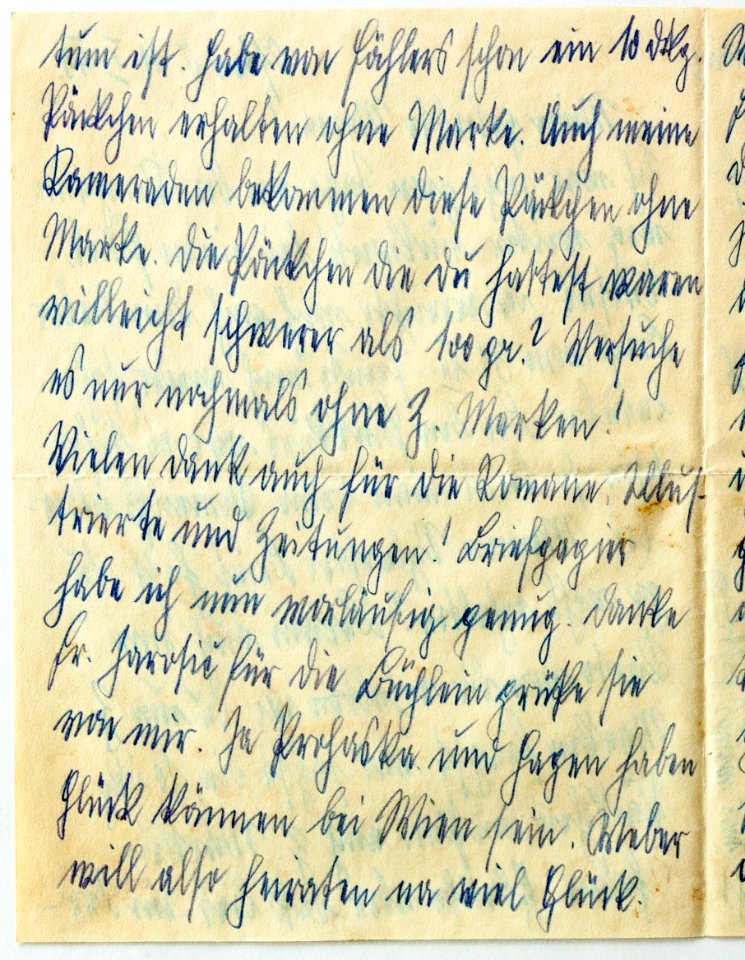 tum ist. Habe von Fählers schon ein 10 dkg.
Päckchen erhalten ohne Marke. Auch meine
Kameraden bekommen diese Päckchen ohne
Marke. Die Päckchen die du hattest waren
villeicht schwerer als 100 gr.? Versuche
es nur nochmals ohne Z. Marken!
Vielen Dank auch für die Romane, Illus-
trierte und Zeitungen! Briefpapier
habe ich nun vorläufig genug. Danke
Fr. Jarosic für die Büchlein grüße sie
von mir. Ja Prohaska und Hagen haben
Glück können bei Wien sein. Weber
will also heiraten na viel Glück.